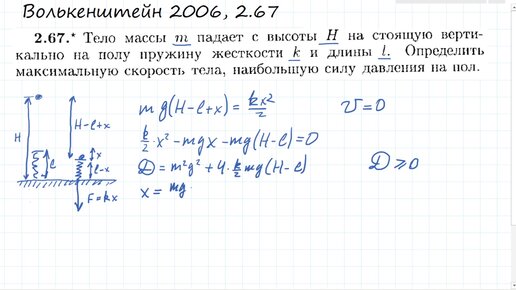 Волькенштейн 2006, 2.67
2.67.* Тело массы m падает с высоты H на стоящую верти-
кально на полу пружину жесткости k и длины l. Определить
максимальную скорость тела, наибольшую силу давления на пол.
mg(H-l+x) = kx²/2
v=0
k/2·x² - mgx - mg(H-l)=0
D = m²g² + 4·k/2 mg(H-l)
D ⩾ 0
x = mg
H
H-l+x
l
x
l-x
F=kx